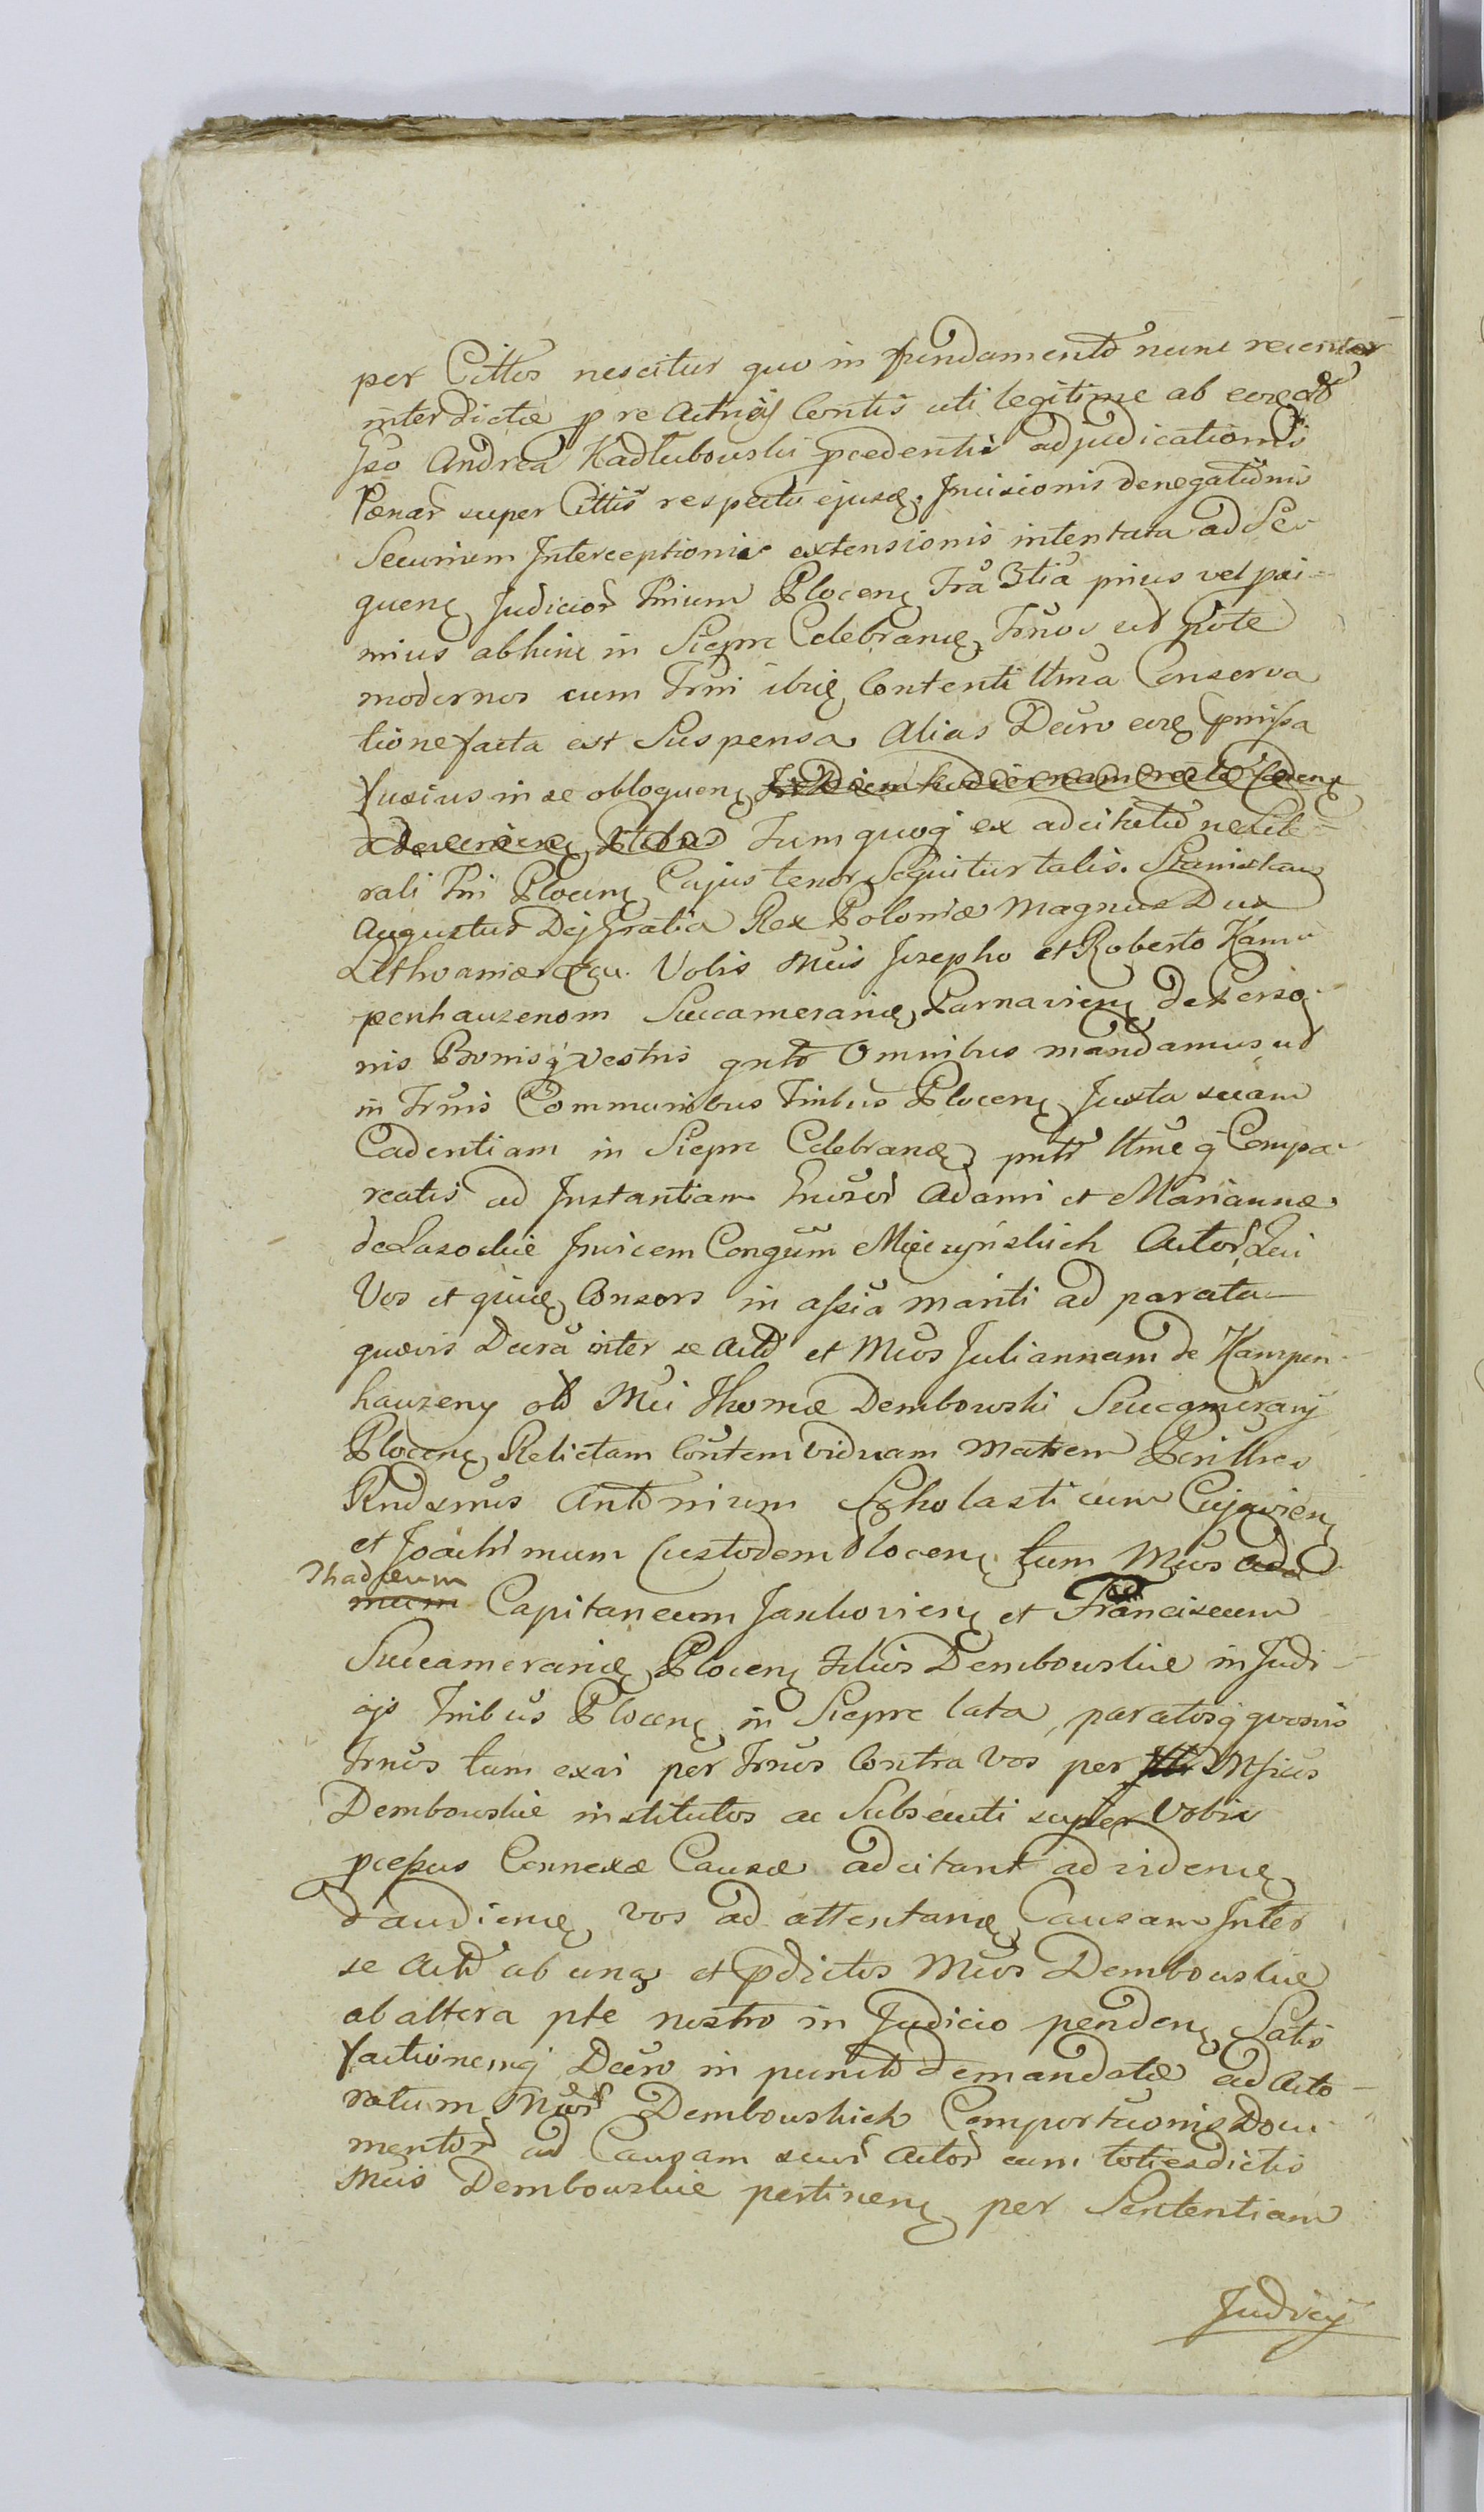 per Cittos nescitur quo in fundamento nunc recenter
interdictæ p re Actricis Contis uti legitime ab eoręd
Gso Andrea Kadłubowski pcedentis adjudicationis
Pænar super Cittis respectu ejusę. Incisionis denegationis
Securium Interceptionis extensionis intentata ad Se
quenę Judicior Trium Plocenę Fra 3tia prius vel pri=
mius abhinc in Sieprc Celebranę Trnos ut pote
modernos cum Trni ibię Contenti ltma Conserva
tione facta est Suspensa Alias Decro eorę pmissa
fusius in se obloquenę In Diem hodiernam recte Cadenę
Tum quoq ex adcitatione Lite=
rali Tri Plocenę Cujus tenor Sequitur talis. Stanislaus
Augustus Dej Gratia Rex Poloniæ Magnus Dux
Lithvaniæ &cu. Vobis Mcis Josepho et Roberto Kam=
penhauzenom Succameranię Parnavienę de Perso
nis Bonisq vestris gnlr Omnibus mandamus ud
in Trnis Communibus Tribus Plocenę Juxta suam
Cadentiam in Sieprc Celebranę pntr ltme q Compa=
reatis ad Instantiam Gnosor Adami et Mariannæ
de Lasockie Invicem Congum Mięczyńskich Actor Qui
Vos et quię Consors in assia mariti ad parata
quævis Decra inter se Actd et Mcos Juliannam de Kampin=
hauzeny old Mci Thomæ Dembowski Succamerarij
Plocenę Relictam Contem viduam Matrem Perillres
Rndsmus Antonium Scholasticum Cujavienę
et Joachimum Custodem Plocenę tum Mcos Ada
Thadæum
mum Capitaneum Jaskovienę et Franciscum
Succameranię Plocenę Filios Dembowskie in Judi=
ojs Tribus Plocenę in Sieprc lata paratosq quosvis
Trnos tum exai per Trnos Contra Vos per Mficos
Dembowskie institutos ac Subsecuti super Vobis
pcessus Connexæ Causæ adcitant ad videnę
& audienę vos ad attentanę Causam Inter
se Actd ab una et pdictos Mcos Dembowskie
ab altera pte nostro in Judicio pendenę Satis
factionemq Decro in puncto demandatæ ad Acto=
ratum Mcor Dembowskich Comportaonis Docu
mentor ad Causam suor Actor cum totiesdictis
Mcis Dembowskie pertinenę per Sententiam
Judicij